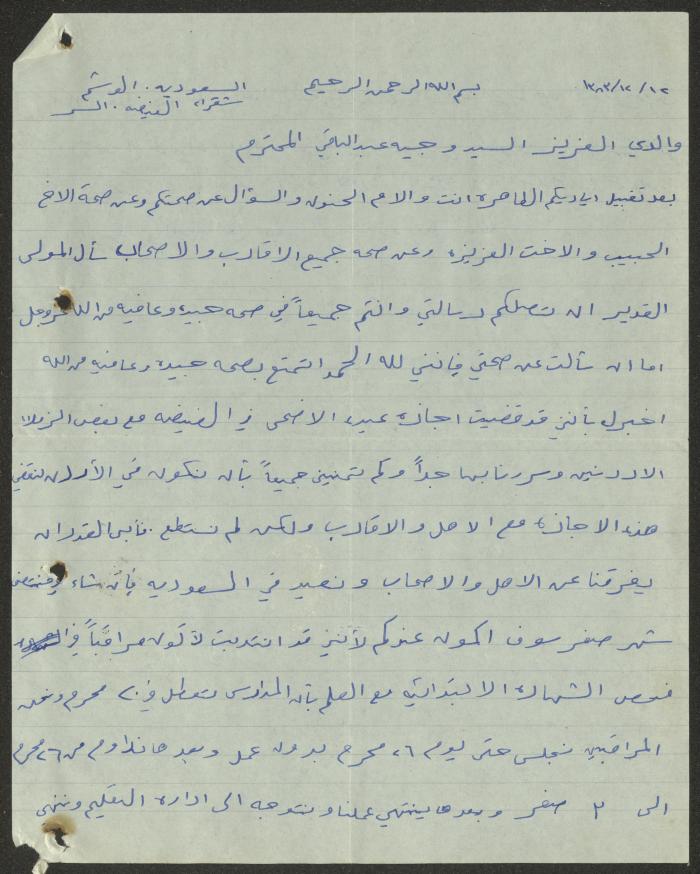 ١٣٨٣/١٢/١٢ بسم الله الرحمن الرحيم السعودية. الوشم
شقراء الفيضه. السر
والدي العزيز السيد وجيه عبد الباقي المحترم
بعد تقبيل اياديكم الطاهرة انت والام الحنون والسؤال عن صحتكم وعن صحة الاخ
الحبيب والاخت العزيزة وعن صحه جميع الاقارب والاصحاب سأل المولى
القدير ان تصلكم رسالتي وانتم جميعاً في صحه جيده وعافيه من الله عز وجل
اما ان سألت عن صحتي فإنني لله الحمد اتمتع بصحه جيده وعافيه من الله
اخبرك بأنني قد قضيت اجازة عيد الاضحى في الفيضه مع بعض الزملاء
الاردنيين وسررنا بها جداً وكم تمنينى جميعاً بأن نكون في الأردن لنقضي
هذه الاجازة مع الاهل والاقارب ولكن لم نستطع. فأبى القدر ان
يفرقنا عن الاهل والاصحاب ونصير في السعوديه فإن شاء
شهر صفر سوف اكون عندكم لأنني قد انتدبت لأكون مراقباً في
فحص الشهادة الابتدائيه مع العلم بأن المدارس تعطل في ٢٠ محرم ونحن
المراقبين نجلس حتى يوم ٢٦ محرم بدون عمل وبعدها نداوم من ٢٦ محرم
الى ٣ صفر وبعدها ينتهي عملنا ونتوجه الى ادارة التعليم وننهي